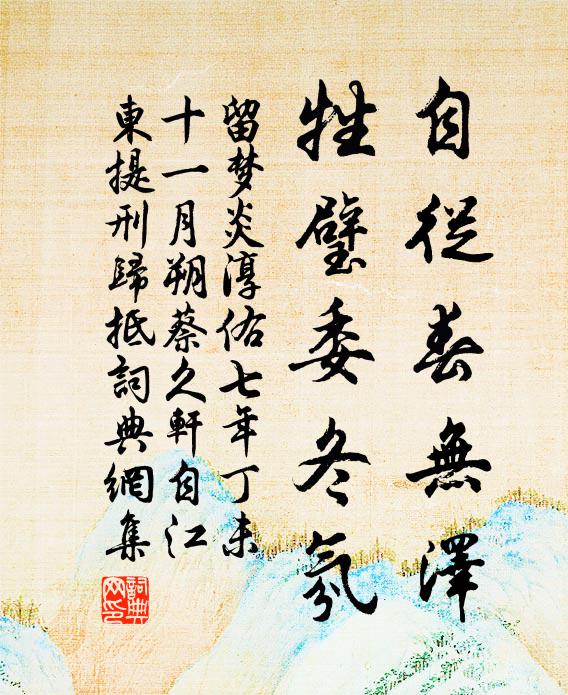 自從春無澤
牲璧委冬氛
留梦炎淳佑七年丁未
十一月朔蔡久軒自江
東提刑歸抵詞典網集
詞典
网印